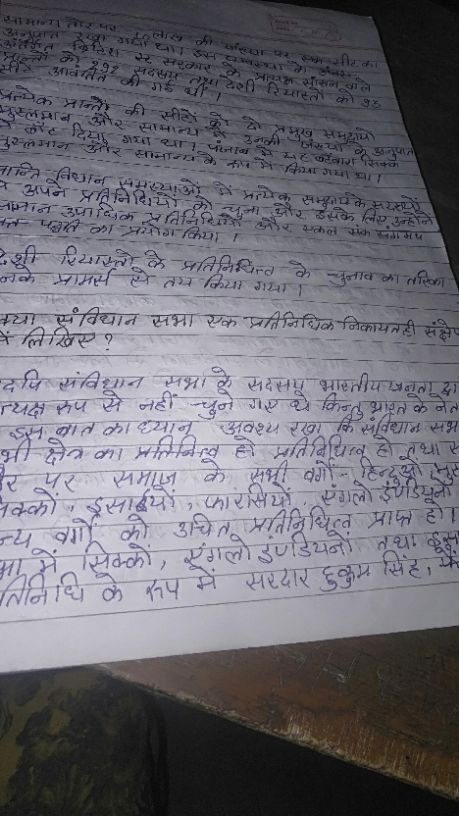 सामान्य तौर पर 10 लाख की जनसंख्या पर एक सीट का
अनुपात रखा गया था। इस व्यवस्था के
ब्रिटिश सरकार के प्रत्यक्ष शासन वाले
प्रान्तों को 292 सदस्य तथा देशी रियासतों को 93
सीटें आवंटित की गई थी।
प्रत्येक प्रान्तों की सीटों को दो प्रमुख समुदायों
मुसलमान और सामान्य में उनकी जनसंख्या के अनुपात
में बांट दिया गया था। पंजाब में यह बंटवारा सिक्ख
मुसलमान और सामान्य के रूप में किया गया था।
प्रान्तिय विधान सभाओं में प्रत्येक समुदाय के सदस्यों
ने अपने प्रतिनिधियों को चुना और इसके लिए उन्होंने
समान और एकल
मत पद्धति का प्रयोग किया।
देशी रियासतों के प्रतिनिधित्व के चुनाव का तरिका
उनके परामर्स से तय किया गया।
क्या संविधान सभा एक प्रतिनिधिक निकाय थी संक्षेप
में लिखिए?
यद्यपि संविधान सभा के सदस्य भारतीय जनता द्वा
प्रत्यक्ष रूप से नहीं चुने गए थे किन्तु भारत के नेता
इस बात का ध्यान अवश्य रखा कि संविधान सभा
सभी क्षेत्र का प्रतिनिधित्व हो तथा स
तौर पर समाज के सभी वर्गो- हिन्दुओं मुस
सिक्कों, इसाइयों, फारसियों, एंग्लो इण्डियनों
अन्य वर्गों को उचित प्रतिनिधित्व प्राप्त हो।
सभा में सिक्कों, एंगलो इण्डियनों तथा इसा
प्रतिनिधि के रूप में सरदार हुकुम सिंह,